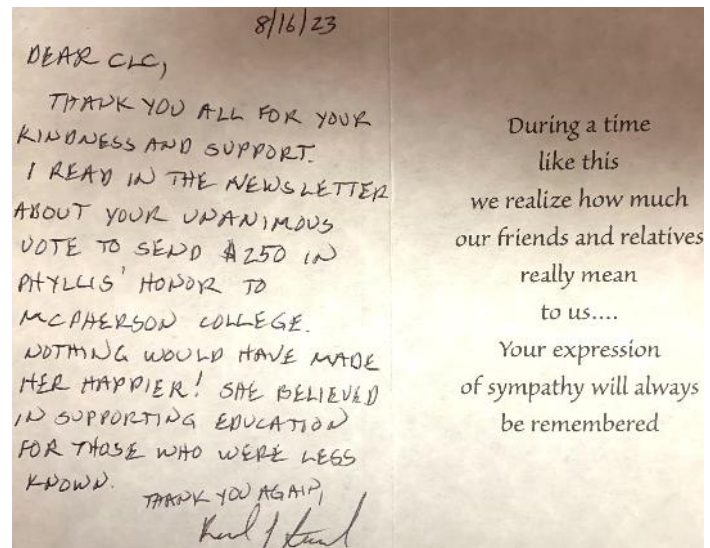 8/16/23
DEAR CLC,
THANK YOU ALL FOR YOUR
KINDNESS AND SUPPORT.
I READ IN THE NEWSLETTER
ABOUT YOUR UNANIMOUS
VOTE TO SEND $250 IN
PHYLLIS' HONOR TO
MCPHERSON COLLEGE.
NOTHING WOULD HAVE MADE
HER HAPPIER! SHE BELIEVED
IN SUPPORTING EDUCATION
FOR THOSE WHO WERE LESS
KNOWN.
THANK YOU AGAIN,
During a time
like this
we realize how much
our friends and relatives
really mean
to us....
Your expression
of sympathy will always
be remembered